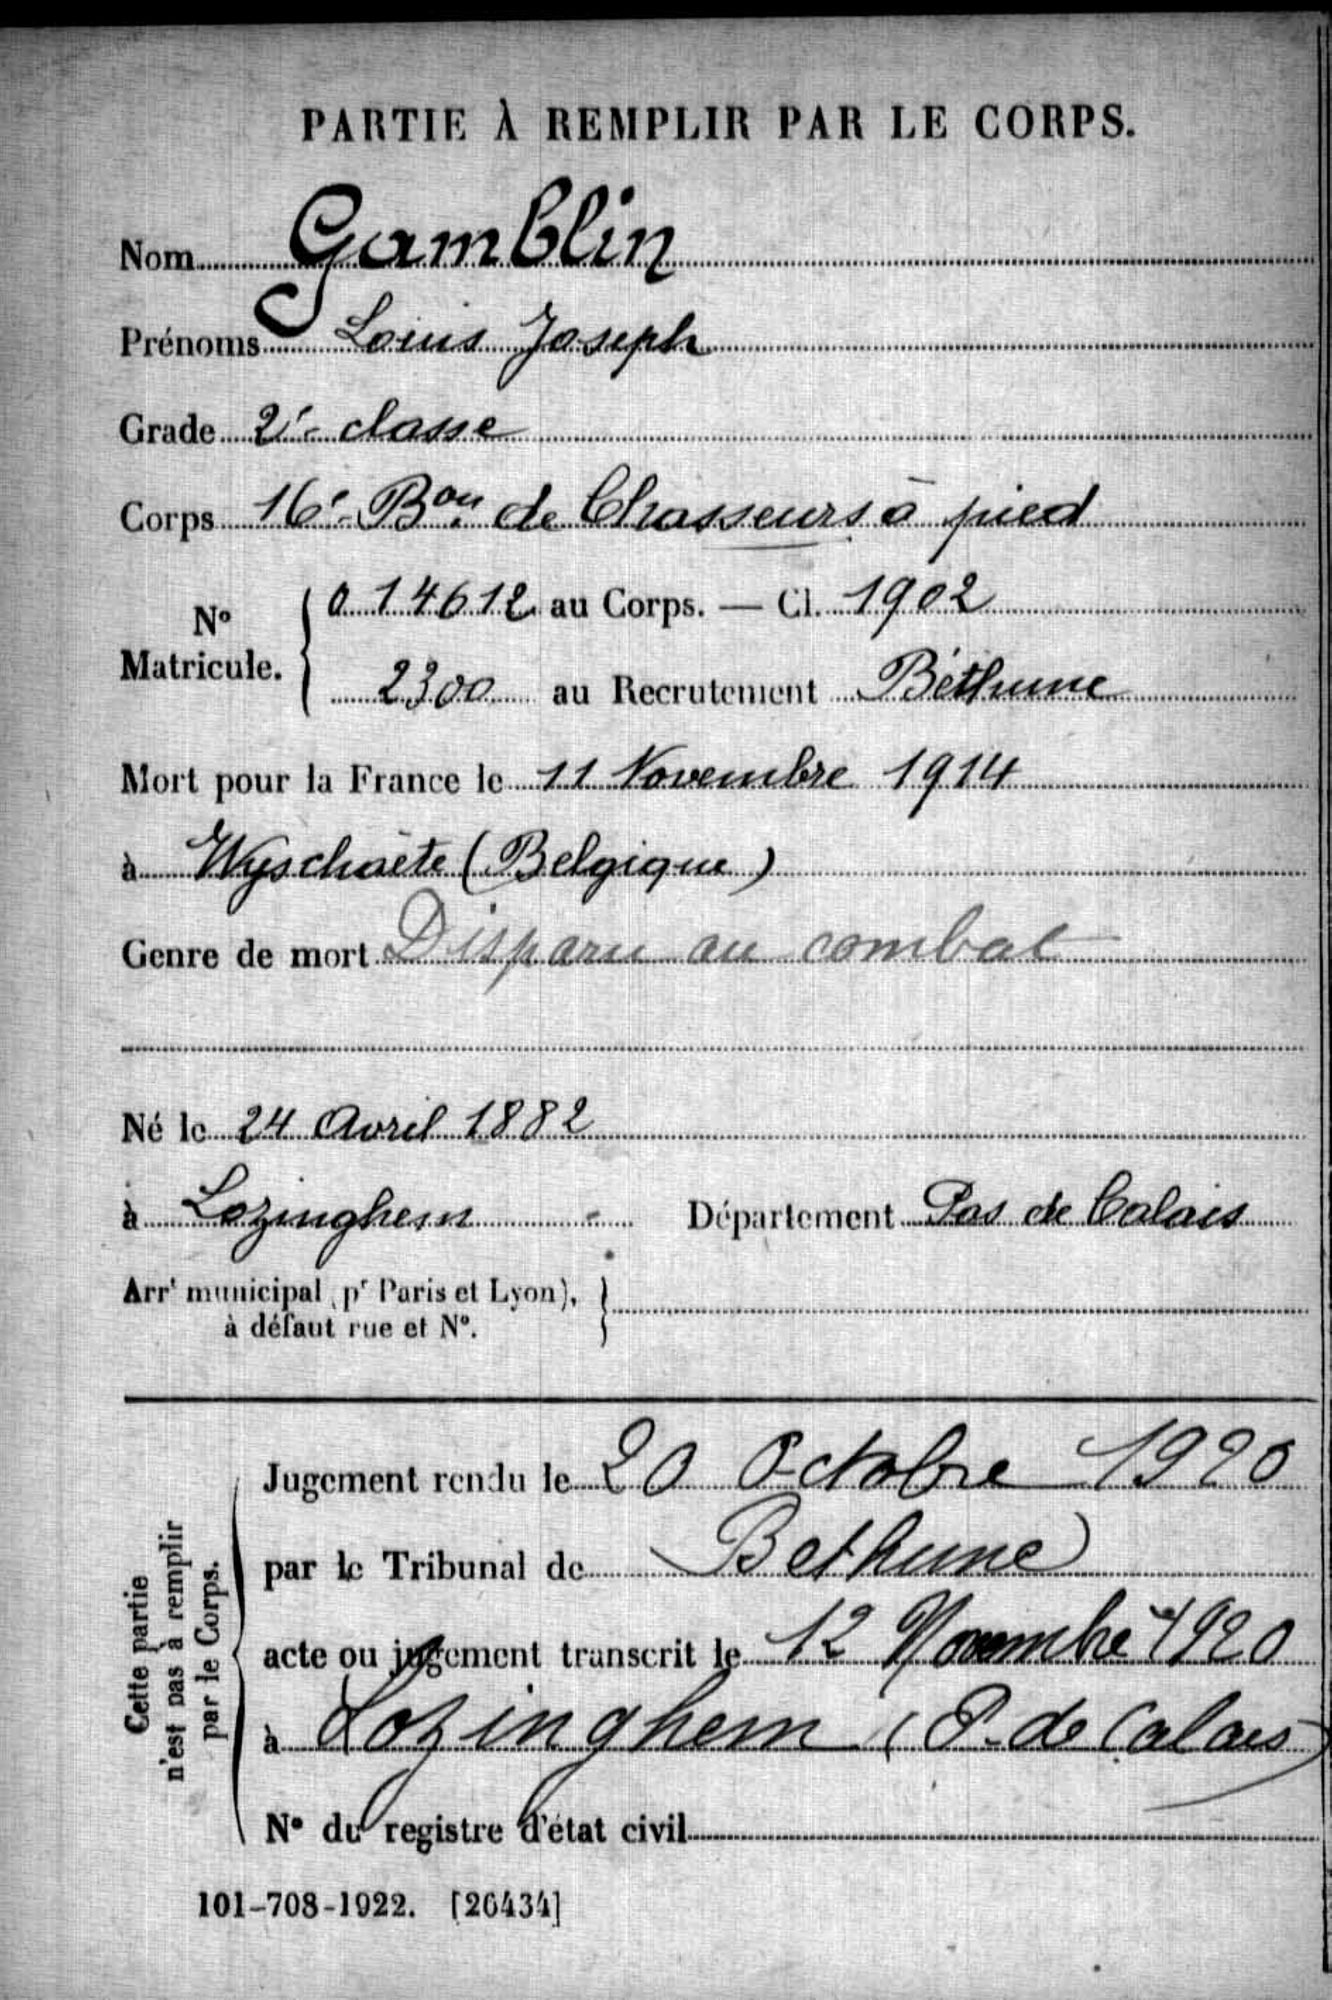 PARTIE À REMPLIR PAR LE CORPS.
Nom Gamblin
Prénoms Louis Joseph
Grade 2e classe
Corps 16e Bon de Chasseurs à pied
No Matricule. { 0 14612 au Corps. — Cl. 1902
2300 au Recrutement Béthune
Mort pour la France le 11 Novembre 1914
à Wyschaëte (Belgique)
Genre de mort Disparu au combat
Né le 24 Avril 1882
à Lozinghem Département Pas de Calais
Arrt municipal (pr Paris et Lyon),
à défaut rue et No.
Cette partie
n'est pas à remplir
par le Corps.
Jugement rendu le 20 Octobre 1920
par le Tribunal de Bethune
acte ou jugement transcrit le 12 Novembre 1920
à Lozinghem (P. de Calais)
No du registre d'état civil
101-708-1922. [26434]